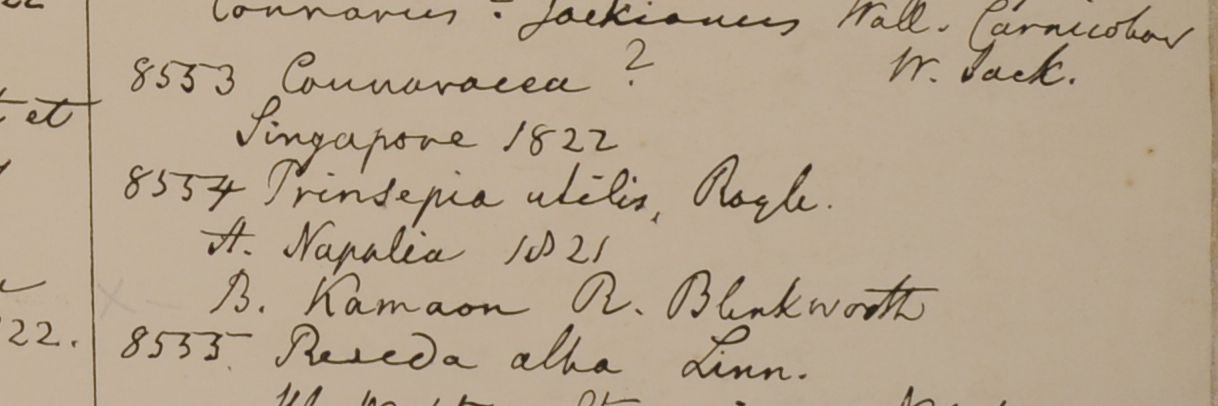 Connarus ? Jackianus Wall. Carnicobar
8553 Connaracea ? W. Jack.
et
Singapore 1822
8554 Prinsepia utilis, Royle.
A. Napalia 1821
B. Kamaon R. Blinkworth
22.
8555 Reseda alba Linn.